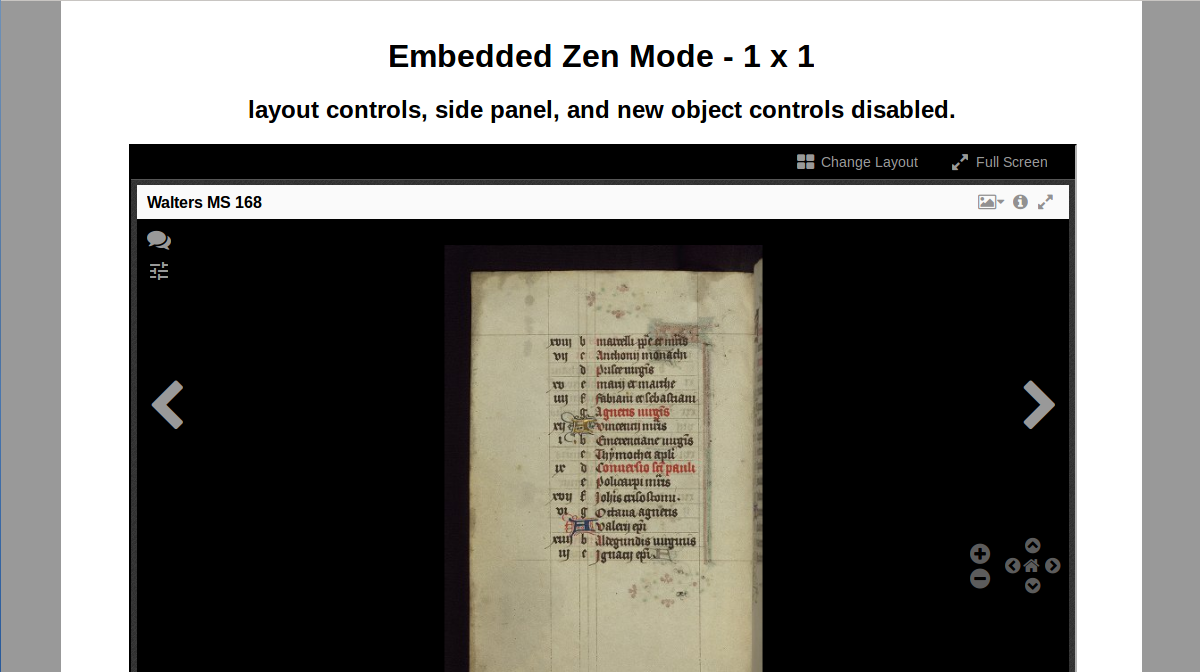 Embedded Zen Mode - 1 x 1
layout controls, side panel, and new object controls disabled.
Change Layout Full Screen
Walters MS 168
xviii b marcelli pp̄e et mr̄is
vii c Anthonii monachi
d prisce uirgīs
xv e marii et marthe
iiii f fabiani et sebastiani
g Agnetis uirgīs
xii vincentii mr̄is
i b Emerentiane uirgīs
c Thymothei apl̄i
ix d Conuersio sc̄i pauli
e Policarpi mr̄is
xvii f Joh̄is crisostomi.
vi g Octaua agnetis
A valerii ep̄i
xiiii b Aldegundis uirginis
iii c Ignacii ep̄i